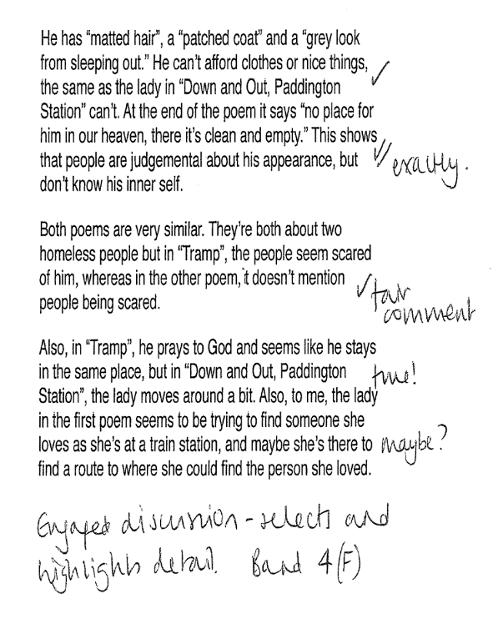 He has “matted hair”, a “patched coat” and a “grey look
from sleeping out.” He can’t afford clothes or nice things,
the same as the lady in “Down and Out, Paddington
Station” can’t. At the end of the poem it says “no place for
him in our heaven, there it’s clean and empty.” This shows
that people are judgemental about his appearance, but
don’t know his inner self.
exactly.
Both poems are very similar. They’re both about two
homeless people but in “Tramp”, the people seem scared
of him, whereas in the other poem, it doesn’t mention
people being scared.
fair
comment
Also, in “Tramp”, he prays to God and seems like he stays
in the same place, but in “Down and Out, Paddington
Station”, the lady moves around a bit. Also, to me, the lady
in the first poem seems to be trying to find someone she
loves as she’s at a train station, and maybe she’s there to
find a route to where she could find the person she loved.
true!
maybe?
Engaged discussion - selects and
highlights detail. Band 4 (F)